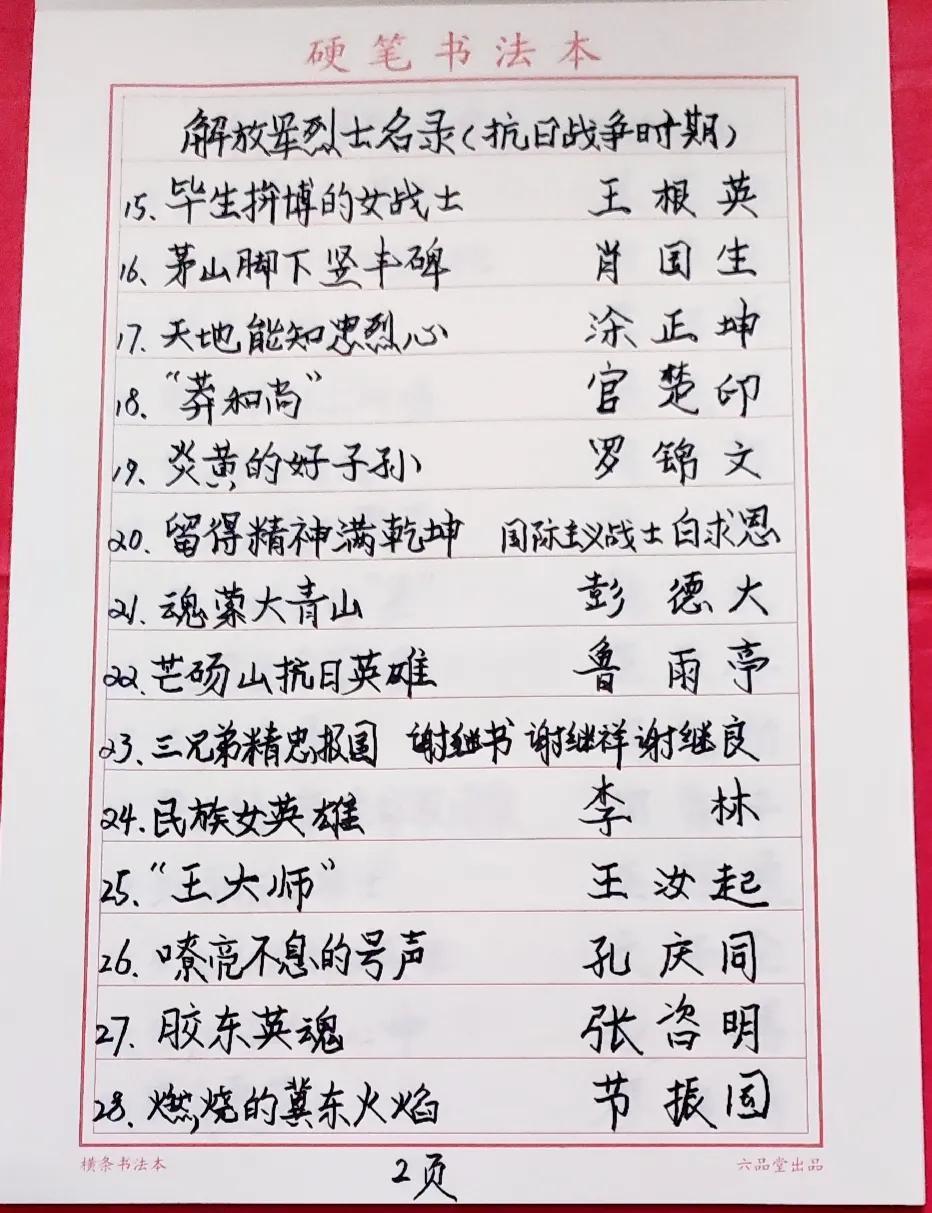 硬笔书法本
解放军烈士名录(抗日战争时期)
15. 毕生拚博的女战士 王根英
16、茅山脚下竖丰碑 肖国生
17. 天地能知忠烈心 涂正坤
18、“莽和尚” 官楚印
19. 炎黄的好子孙 罗锦文
20. 留得精神满乾坤 国际主义战士白求恩
21. 魂萦大青山 彭德大
22. 芒砀山抗日英雄 鲁雨亭
23、三兄弟精忠报国 谢继书 谢继祥 谢继良
24. 民族女英雄 李林
25. “王大师” 王汝起
26、嘹亮不息的号声 孔庆同
27. 胶东英魂 张咨明
28. 燃烧的冀东火焰 节振国
横条书法本 2页 六品堂出品